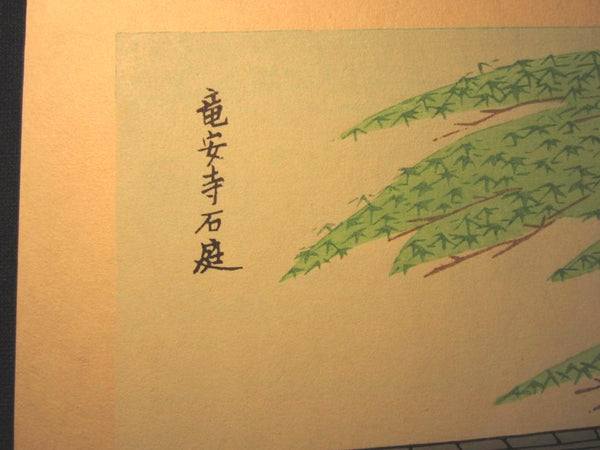 竜安寺石庭